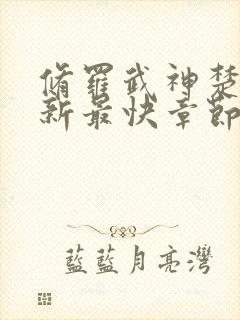 脩羅武神楚
新最快章節
藍藍月亮灣